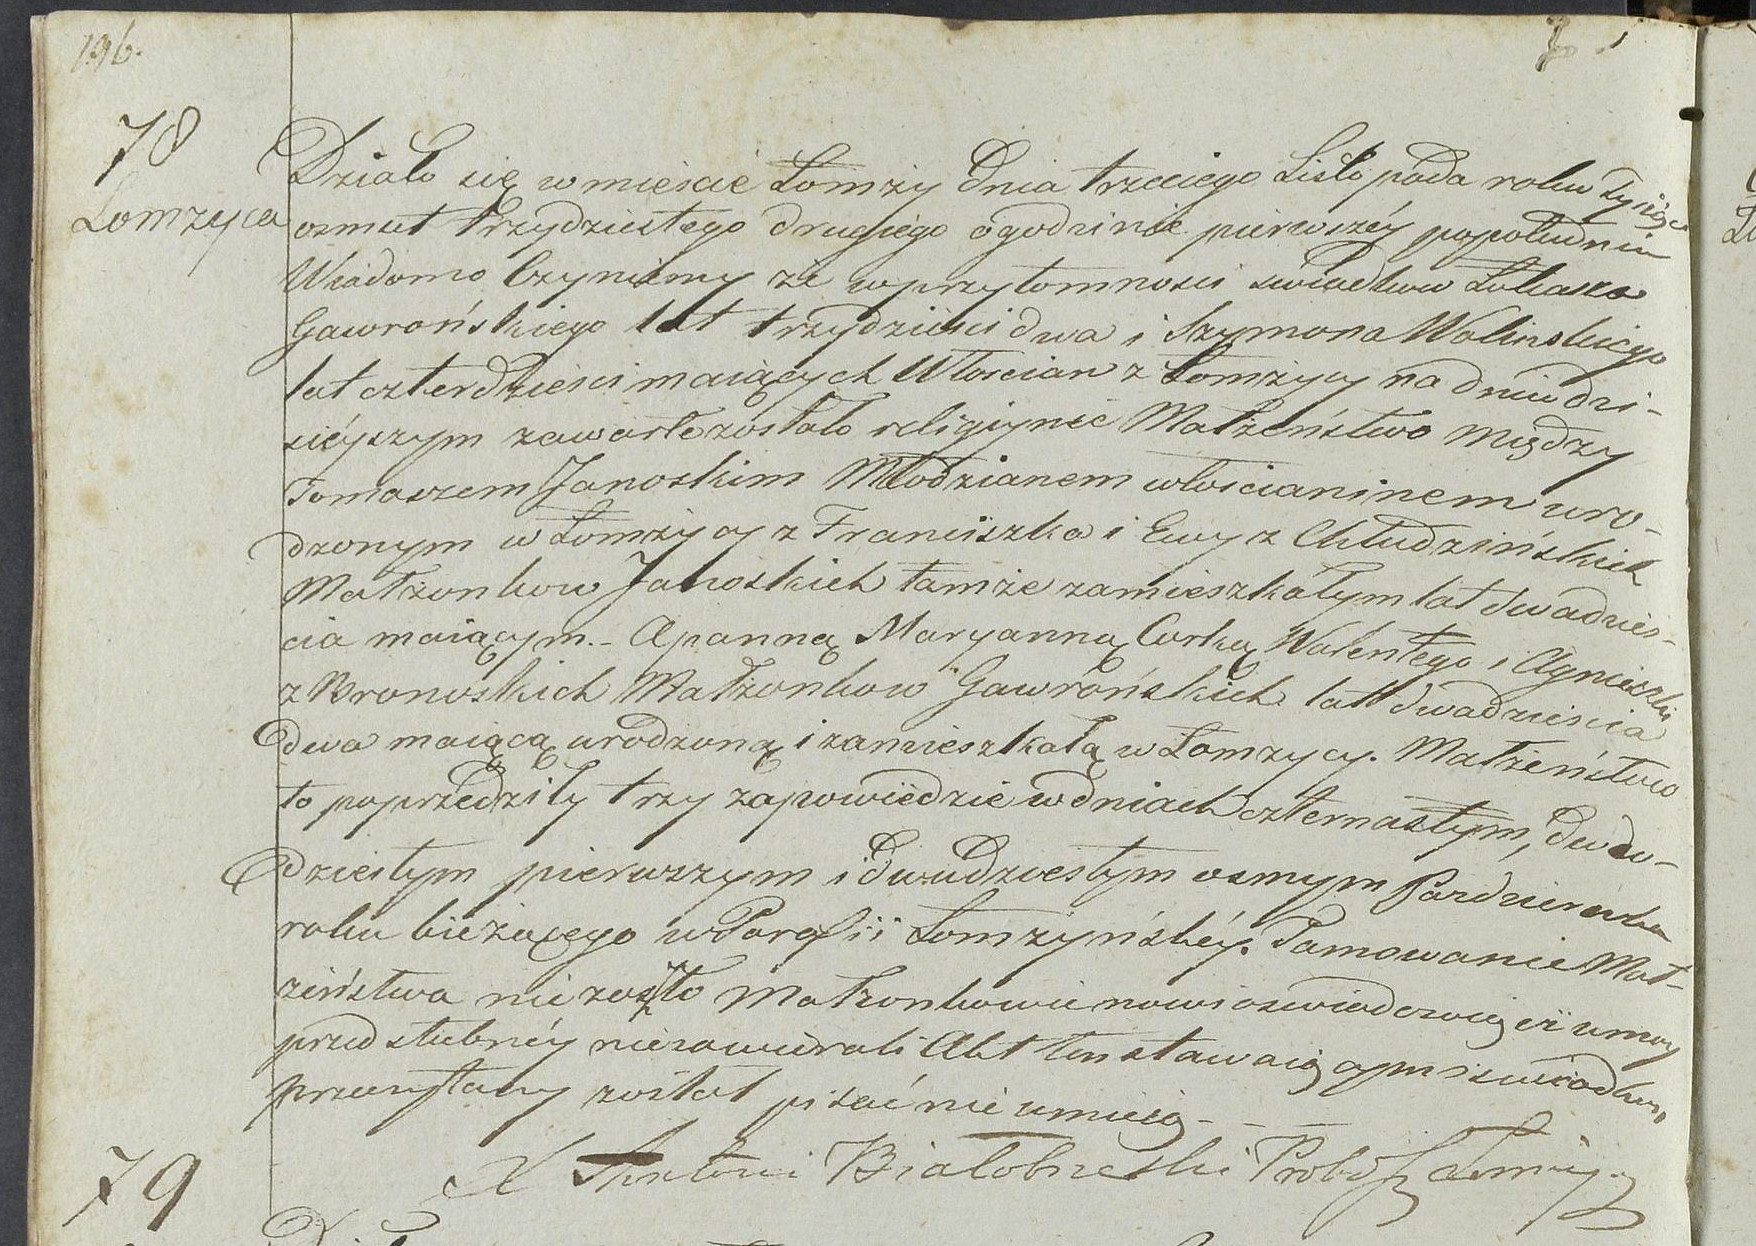 196.
78
Łomzyca
Działo się w mieście Łomży dnia trzeciego Listopada roku Tysiąc
osmset trzydziestego drugiego ogodzinie pierwszéy popołudniu
Wiadomo Czyniemy że wprzytomnosci swiadkow Łukasza
Gawrońskiego lat trzydziesci dwa i Szymona Wolinskiego
lat czterdziesci maiących Włoscian z Łomżycy na dniu dzi-
sieyszym zawarte zostało religiynie Małżeństwo między
Tomaszem Janoskim Młodzianem włoscianinem uro-
dzonym w Łomżycy z Franciszka i Ewy z Chludzińskich
Małżonkow Janoskich tamże zamieszkałym lat dwadzies-
cia maiącym. - A panną Maryanną Curką Walentego i Agnieszki
z Bronoskich Małżonkow Gawrońskich lat dwadziescia
dwa maiącą urodzoną i zamieszkałą w Łomzycy. Małżeństwo
to poprzedziły trzy zapowiedzie w dniach czternastym, dwu-
dziestym pierwszym i dwudziestym osmym Pazdziernika
roku bieżącego w Parafii Łomzyńskéy. Tamowanie Mał-
żeństwa nie zaszło Małzonkowie nowi oswiadczaią iż umowy
przed slubnéy niezawierali Akt ten stawaiącym i swiadkom
przeczytany został pisać nie umieią - - -
X Antoni Białobrzeski Probosz
79